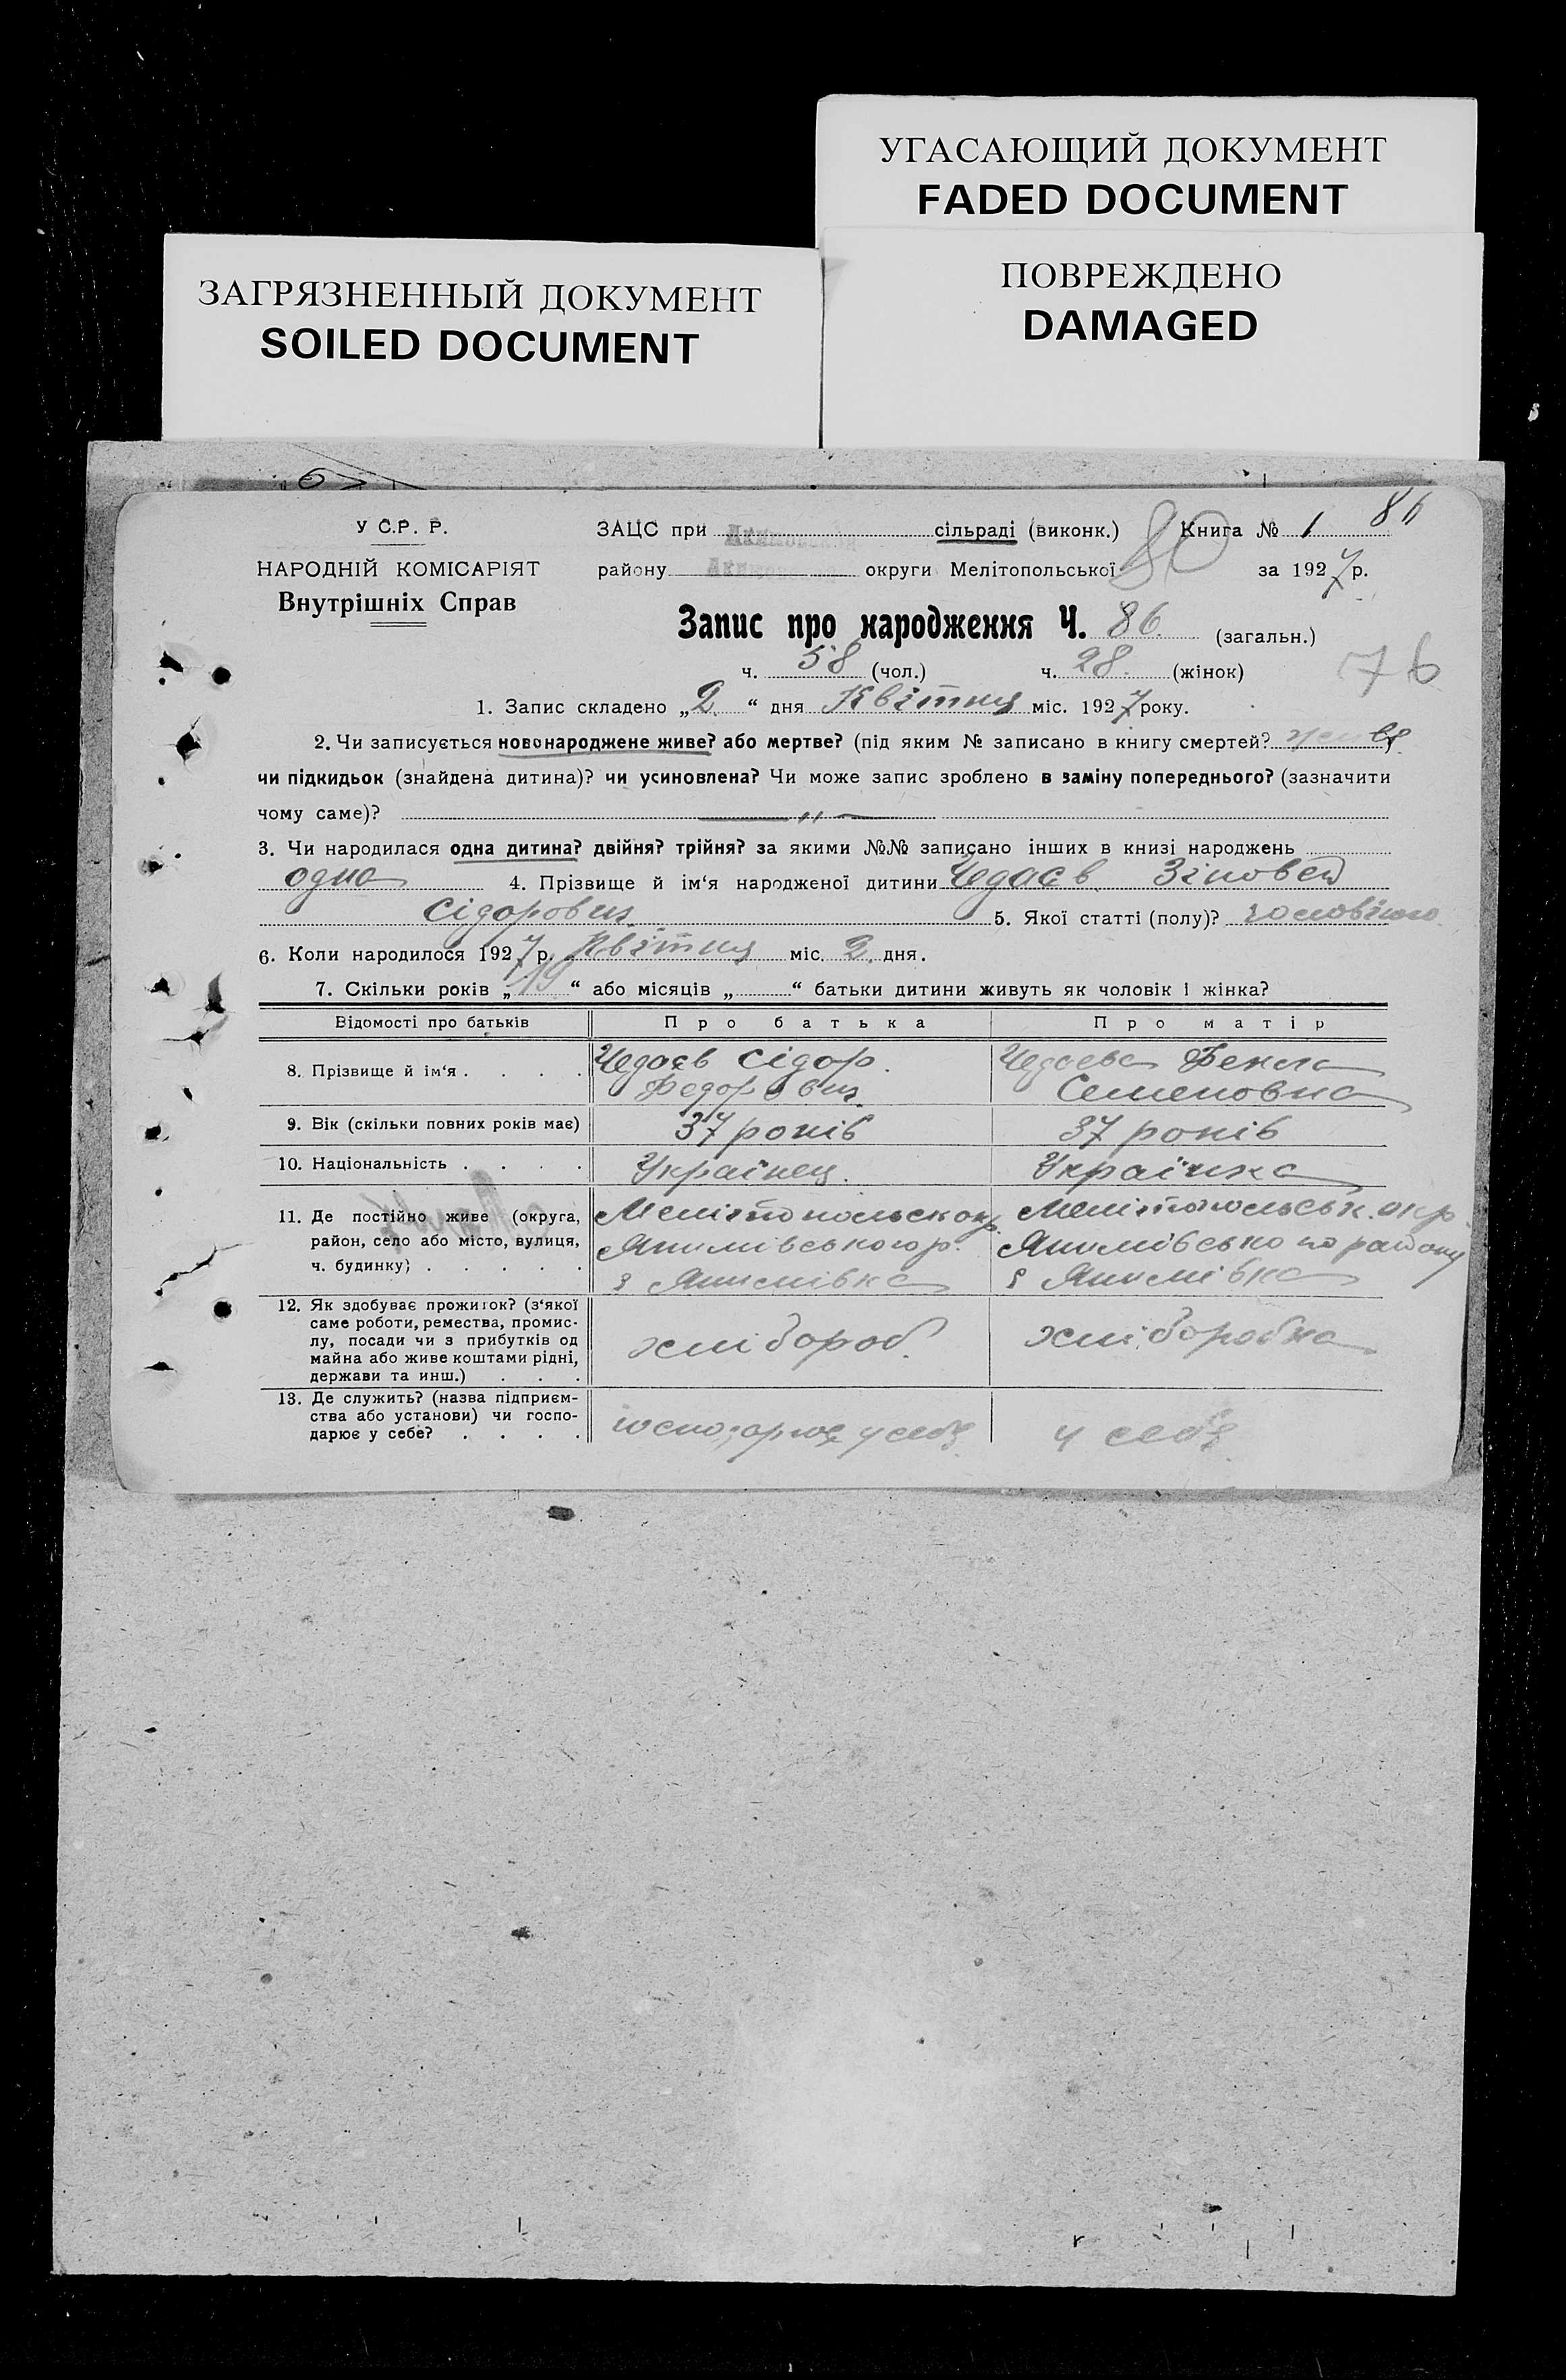 УГАСАЮЩИЙ ДОКУМЕНТ
FADED DOCUMENT
ЗАГРЯЗНЕННЫЙ ДОКУМЕНТ
SOILED DOCUMENT
ПОВРЕЖДЕНО
DAMAGED
У С.Р. Р.
НАРОДНІЙ КОМІСАРІЯТ
Внутрішніх Справ
86
ЗАЦС при сільраді (виконк.) Книга № 1
80
району округи Мелітопольської за 1927 р.
Запис про народження Ч. 86 (загальн.)
ч. 58 (чол.) ч. 28. (жінок)
76
1. Запис складено „2“ дня Квітня міс. 1927 року.
2. Чи записується новонароджене живе? або мертве? (під яким № записано в книгу смертей? живе
чи підкидьок (знайдена дитина)? чи усиновлена? Чи може запис зроблено в заміну попереднього? (зазначити
чому саме)? — „ —
3. Чи народилася одна дитина? двійня? трійня? за якими №№ записано інших в книзі народжень
одна 4. Прізвище й ім‘я народженої дитини Чедаєв Зіновей
Сідорович 5. Якої статті (полу)? чоловічого
6. Коли народилося 1927 р. Квітня міс. 2 дня.
7. Скільки років „19“ або місяців „ “ батьки дитини живуть як чоловік і жінка?
Відомості про батьків Про батька Про матір
8. Прізвище й ім‘я . . . . Чедаєв Сідор Федорович Чедаева Текла Семеновна
9. Вік (скільки повних років має) 37 років 37 років
10. Національність . . . . Українец. Українка
11. Де постійно живе (округа, Мелітопольск окр. Мелітопольськ. окр.
район, село або місто, вулиця, Якимівського р. Якимівського району
ч. будинку) . . . . . Якимівка Якимівка
12. Як здобуває прожиток? (з‘якої
саме роботи, ремества, промис-
лу, посади чи з прибутків од хлібороб. хліборобка
майна або живе коштами рідні,
держави та инш.) . . .
13. Де служить? (назва підприєм-
ства або установи) чи госпо- господарює у себе у себе
дарює у себе? . . . .